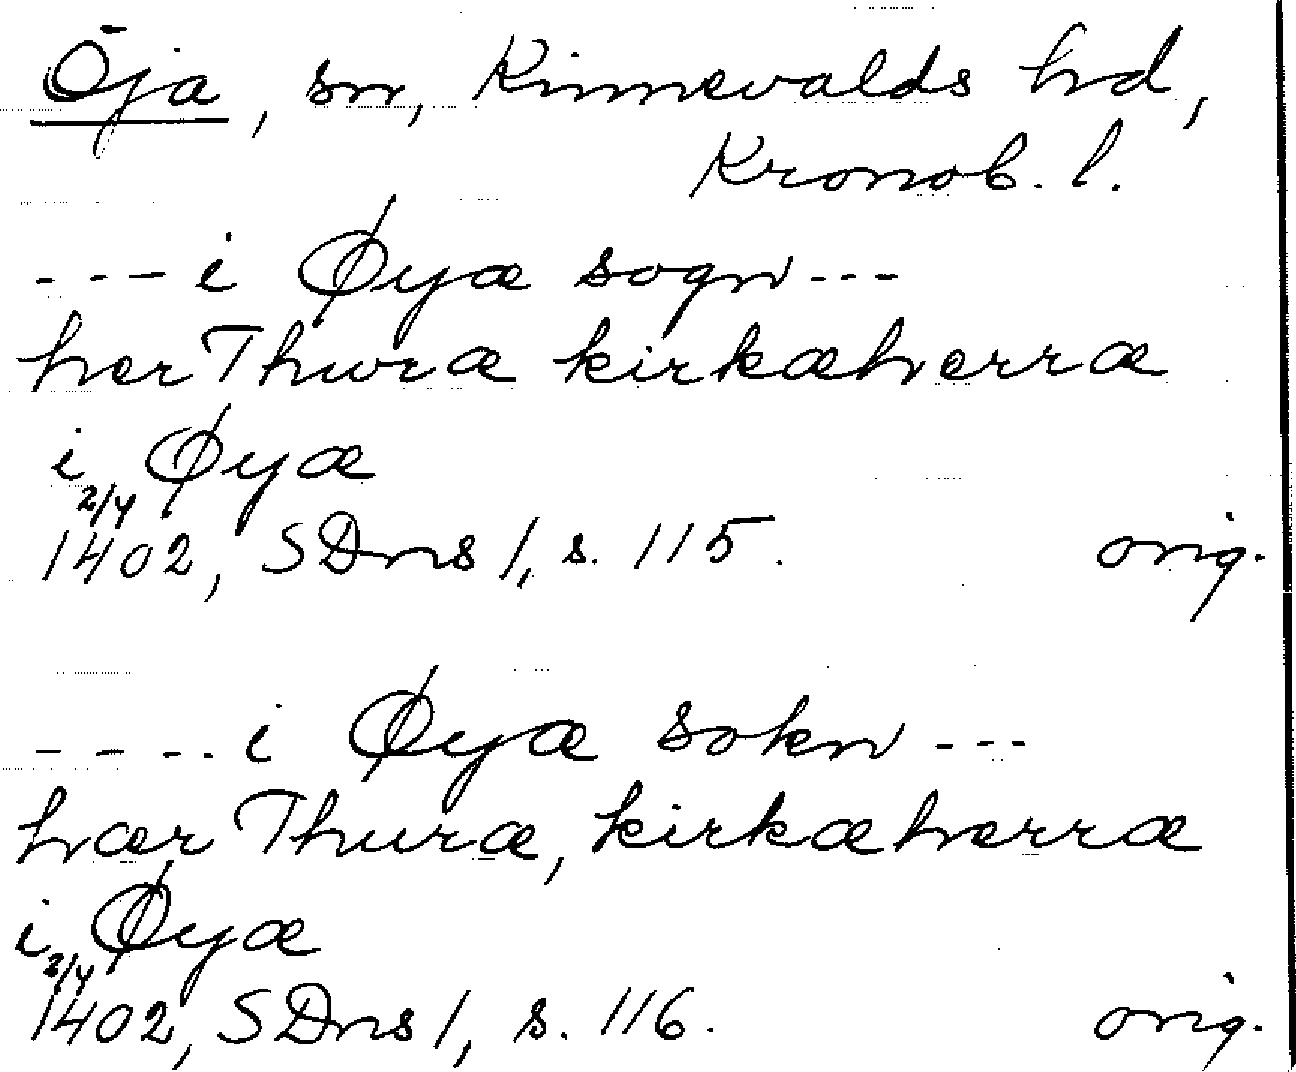 Öja, sn, Kinnevalds hd,
Kronob. l.
--- i Øyæ sogn ---
her Thuræ kirkæherræ
i Øyæ
2/4
1402, SDns 1, s. 115. orig.
---- i Øyæ sokn ---
hær Thuræ, kirkæherræ
i Øyæ
2/4
1402, SDns 1, s. 116. orig.